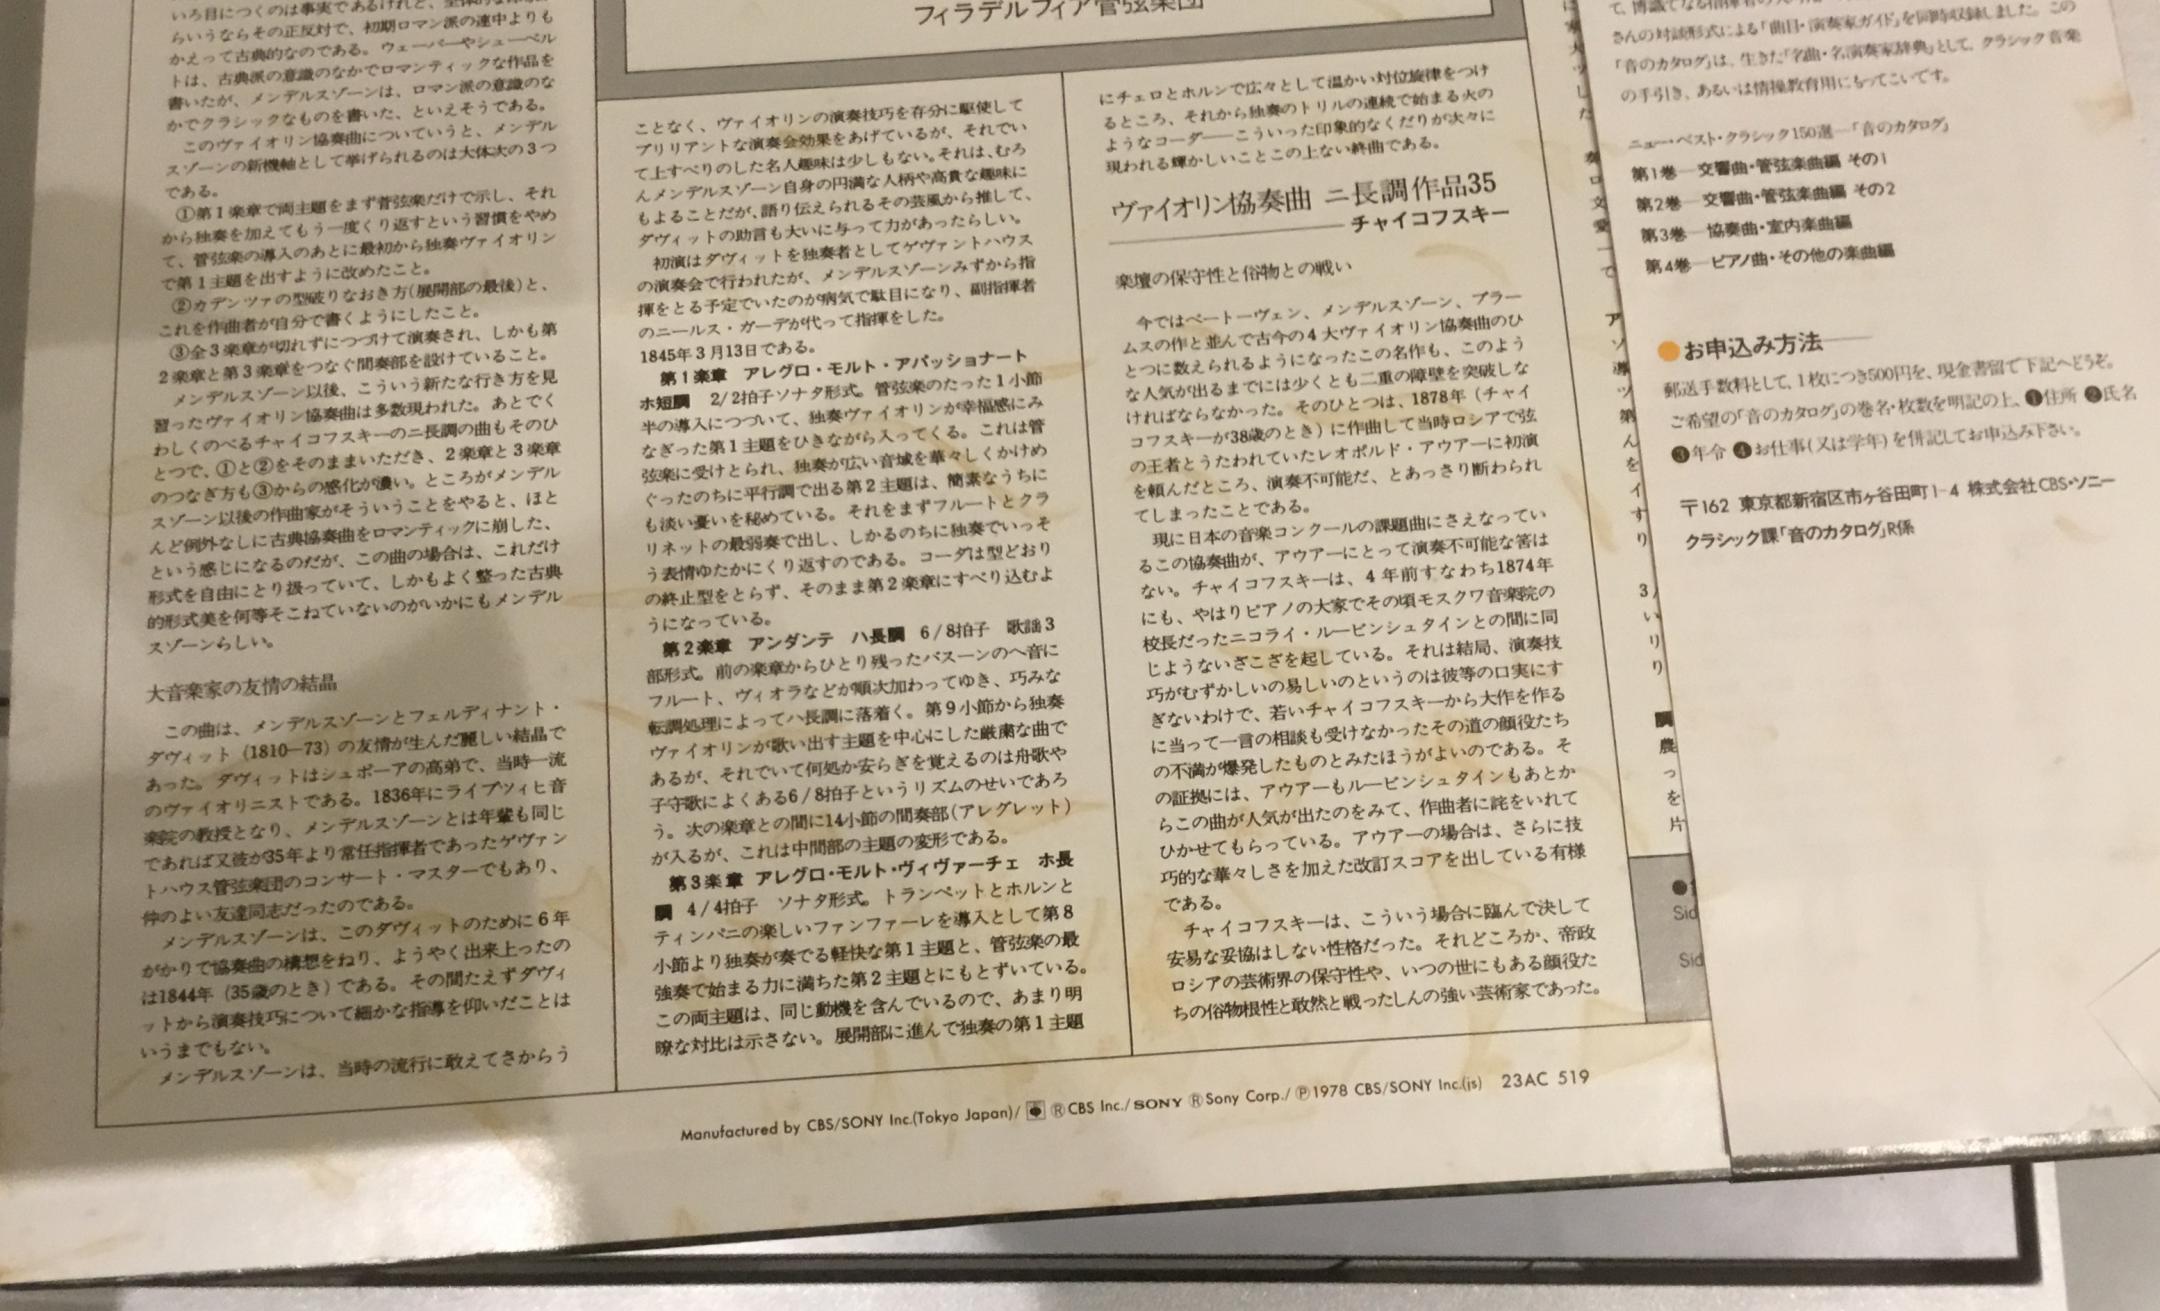 いろ目につくのは事実であるけれど、
らいうならその正反対で、初期ロマン派の連中よりも
かえって古典的なのである。ウェーバーやシューベル
トは、古典派の意識のなかでロマンティックな作品を
書いたが、メンデルスゾーンは、ロマン派の意識のな
かでクラシックなものを書いた、といえそうである。
このヴァイオリン協奏曲についていうと、メンデル
スゾーンの新機軸として挙げられるのは大体次の3つ
である。
①第1楽章で両主題をまず管弦楽だけで示し、それ
から独奏を加えてもう一度くり返すという習慣をやめ
て、管弦楽の導入のあとに最初から独奏ヴァイオリン
で第1主題を出すように改めたこと。
②カデンツァの型破りなおき方(展開部の最後)と、
これを作曲者が自分で書くようにしたこと。
③全3楽章が切れずにつづけて演奏され、しかも第
2楽章と第3楽章をつなぐ間奏部を設けていること。
メンデルスゾーン以後、こういう新たな行き方を見
習ったヴァイオリン協奏曲は多数現われた。あとでく
わしくのべるチャイコフスキーのニ長調の曲もそのひ
とつで、①と②をそのままいただき、2楽章と3楽章
のつなぎ方も③からの感化が濃い。ところがメンデル
スゾーン以後の作曲家がそういうことをやると、ほと
んど例外なしに古典協奏曲をロマンティックに崩した、
という感じになるのだが、この曲の場合は、これだけ
形式を自由にとり扱っていて、しかもよく整った古典
的形式美を何等そこねていないのがいかにもメンデル
スゾーンらしい。
大音楽家の友情の結晶
この曲は、メンデルスゾーンとフェルディナント・
ダヴィット(1810—73)の友情が生んだ麗しい結晶で
あった。ダヴィットはシュポーアの高弟で、当時一流
のヴァイオリニストである。1836年にライプツィヒ音
楽院の教授となり、メンデルスゾーンとは年輩も同じ
であれば又彼が35年より常任指揮者であったゲヴァン
トハウス管弦楽団のコンサート・マスターでもあり、
仲のよい友達同志だったのである。
メンデルスゾーンは、このダヴィットのために6年
がかりで協奏曲の構想をねり、ようやく出来上ったの
は1844年(35歳のとき)である。その間たえずダヴィ
ットから演奏技巧について細かな指導を仰いだことは
いうまでもない。
メンデルスゾーンは、当時の流行に敢えてさからう
フィラデルフィア管弦楽団
ことなく、ヴァイオリンの演奏技巧を存分に駆使して
ブリリアントな演奏会効果をあげているが、それでい
て上すべりのした名人趣味は少しもない。それは、むろ
んメンデルスゾーン自身の円満な人柄や高貴な趣味に
もよることだが、語り伝えられるその芸風から推して、
ダヴィットの助言も大いに与って力があったらしい。
初演はダヴィットを独奏者としてゲヴァントハウス
の演奏会で行われたが、メンデルスゾーンみずから指
揮をとる予定でいたのが病気で駄目になり、副指揮者
のニールス・ガーデが代って指揮をした。
1845年3月13日である。
第1楽章 アレグロ・モルト・アパッショナート
ホ短調 2/2拍子ソナタ形式。管弦楽のたった1小節
半の導入につづいて、独奏ヴァイオリンが幸福感にみ
なぎった第1主題をひきながら入ってくる。これは管
弦楽に受けとられ、独奏が広い音域を華々しくかけめ
ぐったのちに平行調で出る第2主題は、簡素なうちに
も淡い憂いを秘めている。それをまずフルートとクラ
リネットの最弱奏で出し、しかるのちに独奏でいっそ
う表情ゆたかにくり返すのである。コーダは型どおり
の終止型をとらず、そのまま第2楽章にすべり込むよ
うになっている。
第2楽章 アンダンテ ハ長調 6/8拍子 歌謡3
部形式。前の楽章からひとり残ったバスーンのヘ音に
フルート、ヴィオラなどが順次加わってゆき、巧みな
転調処理によってハ長調に落着く。第9小節から独奏
ヴァイオリンが歌い出す主題を中心にした厳粛な曲で
あるが、それでいて何処か安らぎを覚えるのは舟歌や
子守歌によくある6/8拍子というリズムのせいであろ
う。次の楽章との間に14小節の間奏部(アレグレット)
が入るが、これは中間部の主題の変形である。
第3楽章 アレグロ・モルト・ヴィヴァーチェ ホ長
調 4/4拍子 ソナタ形式。トランペットとホルンと
ティンパニの楽しいファンファーレを導入として第8
小節より独奏が奏でる軽快な第1主題と、管弦楽の最
強奏で始まる力に満ちた第2主題とにもとずいている。
この両主題は、同じ動機を含んでいるので、あまり明
瞭な対比は示さない。展開部に進んで独奏の第1主題
にチェロとホルンで広々として温かい対位旋律をつけ
るところ、それから独奏のトリルの連続で始まる火の
ようなコーダ——こういった印象的なくだりが次々に
現われる輝かしいことこの上ない終曲である。
ヴァイオリン協奏曲 ニ長調作品35
チャイコフスキー
楽壇の保守性と俗物との戦い
今ではベートーヴェン、メンデルスゾーン、ブラー
ムスの作と並んで古今の4大ヴァイオリン協奏曲のひ
とつに数えられるようになったこの名作も、このよう
な人気が出るまでには少くとも二重の障壁を突破しな
ければならなかった。そのひとつは、1878年(チャイ
コフスキーが38歳のとき)に作曲して当時ロシアで弦
の王者とうたわれていたレオポルド・アウアーに初演
を頼んだところ、演奏不可能だ、とあっさり断わられ
てしまったことである。
現に日本の音楽コンクールの課題曲にさえなってい
るこの協奏曲が、アウアーにとって演奏不可能な筈は
ない。チャイコフスキーは、4年前すなわち1874年
にも、やはりピアノの大家でその頃モスクワ音楽院の
校長だったニコライ・ルービンシュタインとの間に同
じようないざこざを起している。それは結局、演奏技
巧がむずかしいの易しいのというのは彼等の口実にす
ぎないわけで、若いチャイコフスキーから大作を作る
に当って一言の相談も受けなかったその道の顔役たち
の不満が爆発したものとみたほうがよいのである。そ
の証拠には、アウアーもルービンシュタインもあとか
らこの曲が人気が出たのをみて、作曲者に詫をいれて
ひかせてもらっている。アウアーの場合は、さらに技
巧的な華々しさを加えた改訂スコアを出している有様
である。
チャイコフスキーは、こういう場合に臨んで決して
安易な妥協はしない性格だった。それどころか、帝政
ロシアの芸術界の保守性や、いつの世にもある顔役た
ちの俗物根性と敢然と戦ったしんの強い芸術家であった。
Manufactured by CBS/SONY Inc.(Tokyo Japan)/ ®CBS Inc./SONY ®Sony Corp./℗1978 CBS/SONY Inc.(js) 23AC 519
さんの対談形式による「曲目・演奏家ガイド」を同時収録しました。この
「音のカタログ」は、生きた「名曲・名演奏家辞典」として、クラシック音楽
の手引き、あるいは情操教育用にもってこいです。
ニュー・ベスト・クラシック150選—「音のカタログ」
第1巻—交響曲・管弦楽曲編 その1
第2巻—交響曲・管弦楽曲編 その2
第3巻—協奏曲・室内楽曲編
第4巻—ピアノ曲・その他の楽曲編
●お申込み方法
郵送手数料として、1枚につき500円を、現金書留で下記へどうぞ。
ご希望の「音のカタログ」の巻名・枚数を明記の上、❶住所 ❷氏名
❸年令 ❹お仕事(又は学年)を併記してお申込み下さい。
〒162 東京都新宿区市ヶ谷田町1-4 株式会社CBS・ソニー
クラシック課「音のカタログ」R係